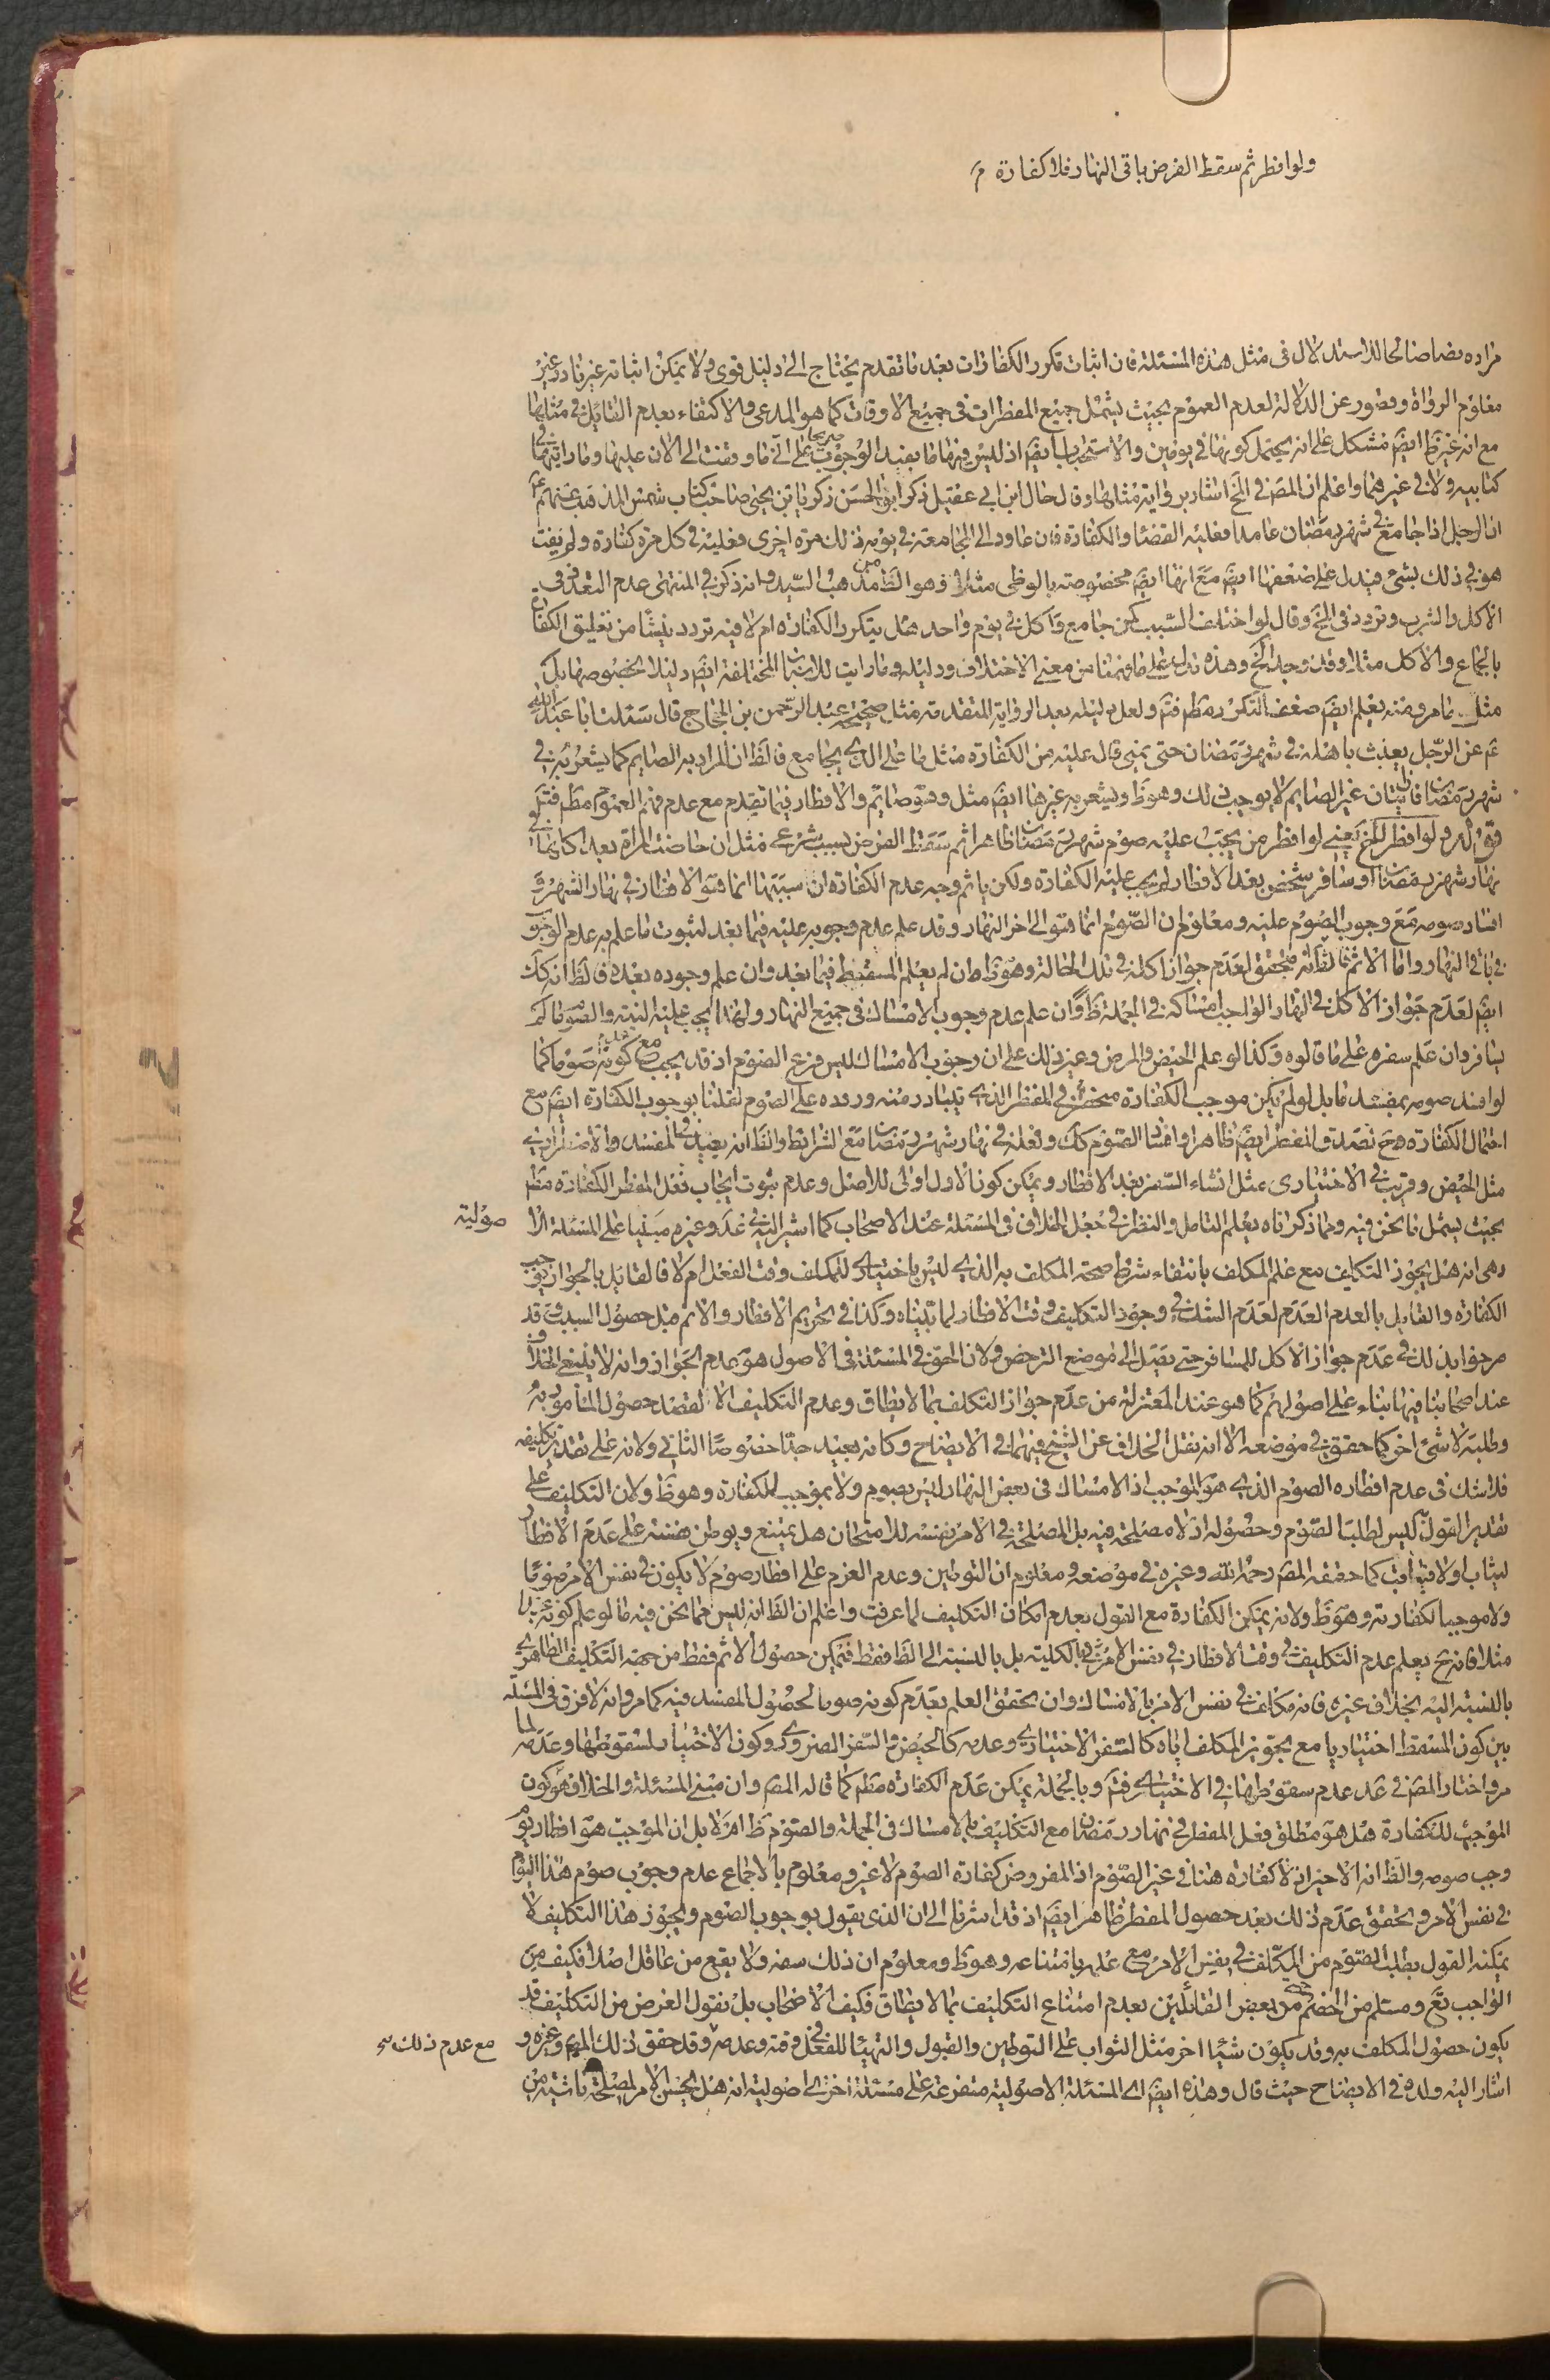 ولو افطر ثم سقط الفرض باقى النهار فلا كفارة م
مراده نصا صالحا للاستدلال فى مثل هذه المسئلة فان اثبات تكرر الكفارات بعد ما تقدم يحتاج الى دليل قوى ولا يمكن اثباته غير نادر غير
معلوم الرواة وقصور عن الدلالة لعدم العموم بحيث يشمل جميع المفطرات فى جميع الاوقات كما هو المدعى والاكتفاء بعدم القايل فى مثلها
مع انه غير ظ ايضً مشكل على انه يحتمل كونها فى يومين والاستحباب ايضً اذ ليس فيها ما يفيد الوجوب صريحا على انى ما وقفت الى الان عليها وما رايتها فى
كتابيه ولا فى غيرهما واعلم ان المص فى لخ اشار برواية مثلها وقال قال ابن ابي عقيل ذكر ابو الحسن زكريا بن يحيى صاحب كتاب شمس المذهب عنهم ع
ان الرجل اذا جامع فى شهر رمضان عامدا فعليه القضاء والكفارة فان عاود الى المجامعة فى يومه ذلك مرة اخرى فعليه فى كل مرة كفارة ولم يفت
هو فى ذلك بشئ فيدل على ضعفها ايضً مع انها ايضً مخصوصة بالوطى مثل ما هو الظ من مذهب السيد وانه ذكر فى المنتهى عدم التعدد فى
الاكل والشرب وتردد فى لخ وقال لو اختلف السبب كمن جامع واكل فى يوم واحد هل يتكرر الكفارة ام لا فيه تردد ينشا من تعليق الكفارة
بالجماع والاكل مثلا وقد وجد الخ وهذه تدل على ما فهمنا من معنى الاختلاف ودليله وما رايت للاسباب المختلفة ايضً دليلا بخصوصها بل
مثل ما مر ومنه يعلم ايضً ضعف التكرر مطم فتم ولعل دليله بعد الرواية المتقدمة مثل صحيحة عبد الرحمن بن الحجاج قال سئلت ابا عبد الله
عم عن الرجل يعبث باهله فى شهر رمضان حتى يمنى قال عليه من الكفارة مثل ما على الذى يجامع فالظ ان المراد به الصايم كما يشعر به فى
شهر رمضان فاتيان غير الصايم لا يوجب ذلك وهو ظ ويشعر به غيرها ايضً مثل وهو صائم والافطار فيما تقدم مع عدم فهم العموم مطم فتم
قوله ولو افطر الخ يعنى لو افطر من يجب عليه صوم شهر رمضان ظاهرا ثم سقط الفرض بسبب شرعى مثل ان حاضت المراة بعد اكلها فى
نهار شهر رمضان او سافر شخص بعد الافطار لم يجب عليه الكفارة ولكن ياثم وجه عدم الكفارة ان سببها انما هو الافطار فى نهار الشهر و
افساد صومه مع وجوب الصوم عليه ومعلوم ان الصوم انما هو الى اخر النهار وقد علم عدم وجوبه عليه فيما بعد لثبوت ما علم به عدم الوجوب
فى باقى النهار واما الاثم فالظ انه متحقق لعدم جواز اكله فى تلك الحالة وهو ظ ان لم يعلم المسقط فيما بعد وان علم وجوده بعد فالظ انه كك
ايضً لعدم جواز الاكل فى النهار الواجب امساكه فى الجملة ظ وان علم عدم وجوب الامساك فى جميع النهار ولهذا يجب عليه النية والصوم ما لم
يسافر وان علم سفره على ما قالوه وكذا لو علم الحيض والمرض وغير ذلك على ان وجوب الامساك ليس فرع الصوم اذ قد يجب مع عدم كونه صوما كما
لو افسد صومه بمفسد ما بل لو لم يكن موجب الكفارة منحصرا فى المفطر الذى يتبادر منه وروده على الصوم لقلنا بوجوب الكفارة ايضً مع
احتمال الكفارة ح تصدق المفطر ايضً ظاهرا وافساد الصوم كك وفعله فى نهار شهر رمضان مع الشرائط والظ انه بعيد فى المفسد والاضطرارى
مثل الحيض وقريب فى الاختيارى مثل انشاء السفر بعد الافطار ويمكن كون الاول اولى للاصل وعدم ثبوت ايجاب فعل المفطر الكفارة مطم
بحيث يشمل ما نحن فيه ومما ذكرناه يعلم التامل والنظر فى جعل الخلاف فى المسئلة عند الاصحاب كما اشير اليه فى عد وغيره مبنيا على المسئلة الا
صولية
وهى انه هل يجوز التكليف مع علم المكلف بانتفاء شرط صحة المكلف به الذى ليس باختيارى للمكلف وقت الفعل ام لا فالقايل بالجواز يوجب
الكفارة والقايل بالعدم العدم لعدم الشك فى وجود التكليف وقت الافطار لما بيناه وكذا فى تحريم الافطار والاثم قبل حصول السبب وقد
صرحوا بذلك فى عدم جواز الاكل للمسافر حتى يصل الى موضع الترخص ولان الحق فى المسئلة فى الاصول هو عدم الجواز وانه لا ينبغى الخلاف
عند اصحابنا فيها بناء على اصولهم كما هو عند المعتزلة من عدم جواز التكليف بما لا يطاق وعدم التكليف الا لقصد حصول المأمور به
وطلبه لا شئ اخر كما حقق فى موضعه الا انه نقل الخلاف عن الشيخ فيهما فى الايضاح وكانه بعيد جدا خصوصا الثانى ولانه على تقدير تكليفه
فلا شك فى عدم افطاره الصوم الذى هو الموجب اذ الامساك فى بعض النهار ليس بصوم ولا بموجب للكفارة وهو ظ ولان التكليف على
تقدير القول ليس لطلب الصوم وحصوله اذ لا مصلحة فيه بل المصلحة فى الامر نفسه للامتحان هل يمتنع ويوطن نفسه على عدم الافطار
ليثاب اولا فيعاقب كما حققه المص رحمه الله وغيره فى موضعه ومعلوم ان التوطين وعدم العزم على افطار صوم لا يكون فى نفس الامر صوما
ولا موجبا لكفارته وهو ظ ولانه يمكن الكفارة مع القول بعدم امكان التكليف لما عرفت واعلم ان الظ انه ليس مما نحن فيه ما لو علم كونه عيدا
مثلا فانه ح يعلم عدم التكليف وقت الافطار فى نفس الامر بالكلية بل بالنسبة الى الظ فقط فيمكن حصول الاثم فقط من جهة التكليف الظاهرى
بالنسبة اليه بخلاف غيره فانه مكلف فى نفس الامر بالامساك وان تحقق العلم بعدم كونه صوما لحصول المفسد فيه كما مر وانه لا فرق فى المسئلة
بين كون المسقط اختياريا مع تجويز المكلف اياه كالسفر الاختيارى وعدمه كالحيض والسفر الضرورى وكون الاختيار لسقوطها وعدمه لما
مر واختار المص فى عد عدم سقوطها فى الاختيارى فتم وبالجملة يمكن عدم الكفارة مطم كما قاله المص وان مبنى المسئلة والخلاف هو كون
الموجب للكفارة هل هو مطلق فعل المفطر فى نهار رمضان مع التكليف بالامساك فى الجملة والصوم ظ ام لا بل ان الموجب هو افطار يوم
وجب صومه والظ انه الاخير اذ لا كفارة هنا فى غير الصوم اذ المفروض كفارة الصوم لا غير ومعلوم بالاجماع عدم وجوب صوم هذا اليوم
فى نفس الامر وتحقق عدم ذلك بعد حصول المفطر ظاهر ايضً اذ قد اشرنا الى ان الذى يقول بوجوب الصوم ويجوز هذا التكليف لا
يمكنه القول بطلب الصوم من المكلف فى نفس الامر مع علمه بامتناعه وهو ظ ومعلوم ان ذلك سفه ولا يقع من عاقل اصلا فكيف من
الواجب تع ومسلم من الخصم من بعض القائلين بعدم امتناع التكليف بما لا يطاق فكيف الاصحاب بل نقول الغرض من التكليف قد
يكون حصول المكلف به وقد يكون شيئا اخر مثل الثواب على التوطين والقبول والتهيئا للفعل فى وقته وعدمه وقد حقق ذلك المص وغيره و
مع عدم ذلك
اشار اليه ولده فى الايضاح حيث قال وهذه ايضً اى المسئلة الاصولية متفرعة على مسئلة اخرى اصولية انه هل يحسن الامر لمصلحة ناشية من